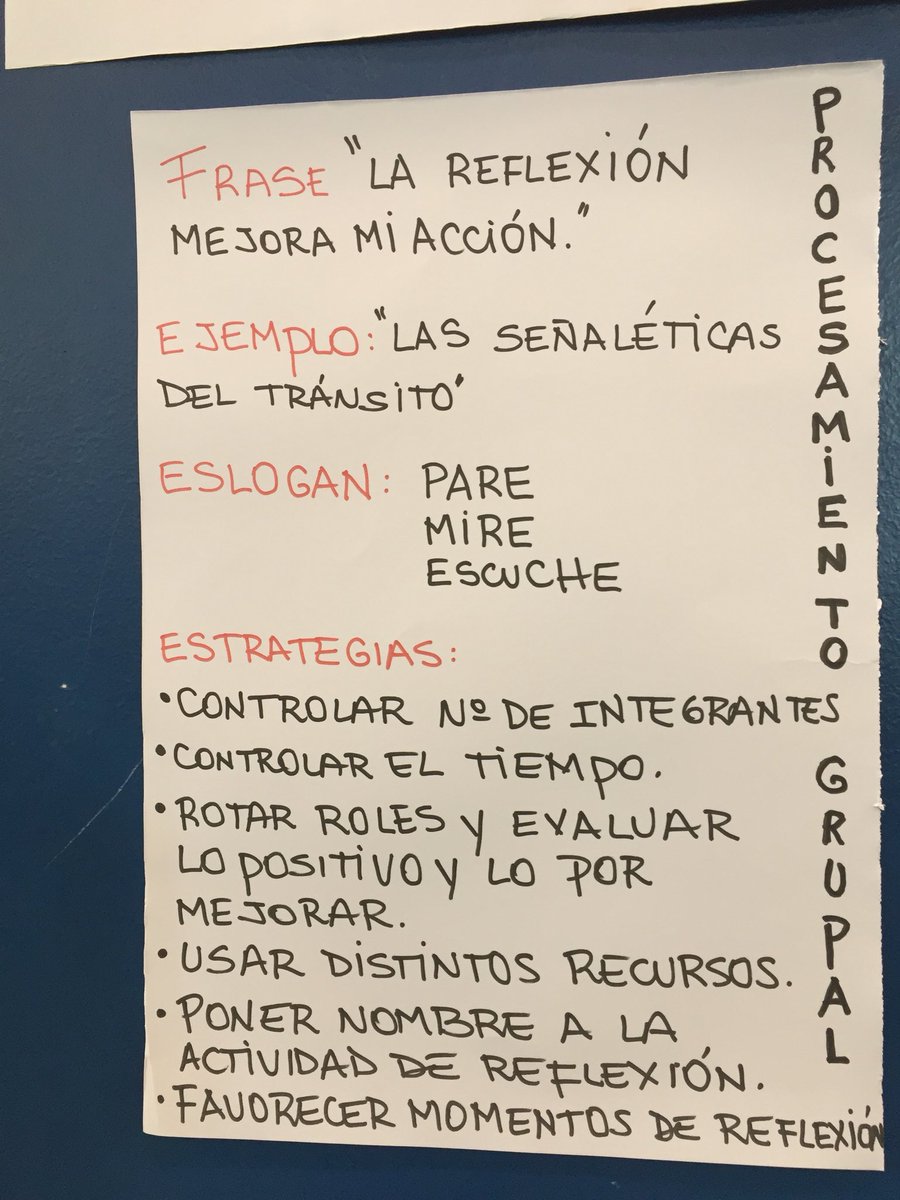 FRASE "LA REFLEXIÓN
MEJORA MI ACCIÓN."
EJEMPLO: "LAS SEÑALÉTICAS
DEL TRÁNSITO"
ESLOGAN: PARE
MIRE
ESCUCHE
ESTRATEGIAS:
• CONTROLAR Nº DE INTEGRANTES
• CONTROLAR EL TIEMPO.
• ROTAR ROLES Y EVALUAR
LO POSITIVO Y LO POR
MEJORAR.
• USAR DISTINTOS RECURSOS.
• PONER NOMBRE A LA
ACTIVIDAD DE REFLEXIÓN.
• FAVORECER MOMENTOS DE REFLEXIÓN
PROCESAMIENTO GRUPAL